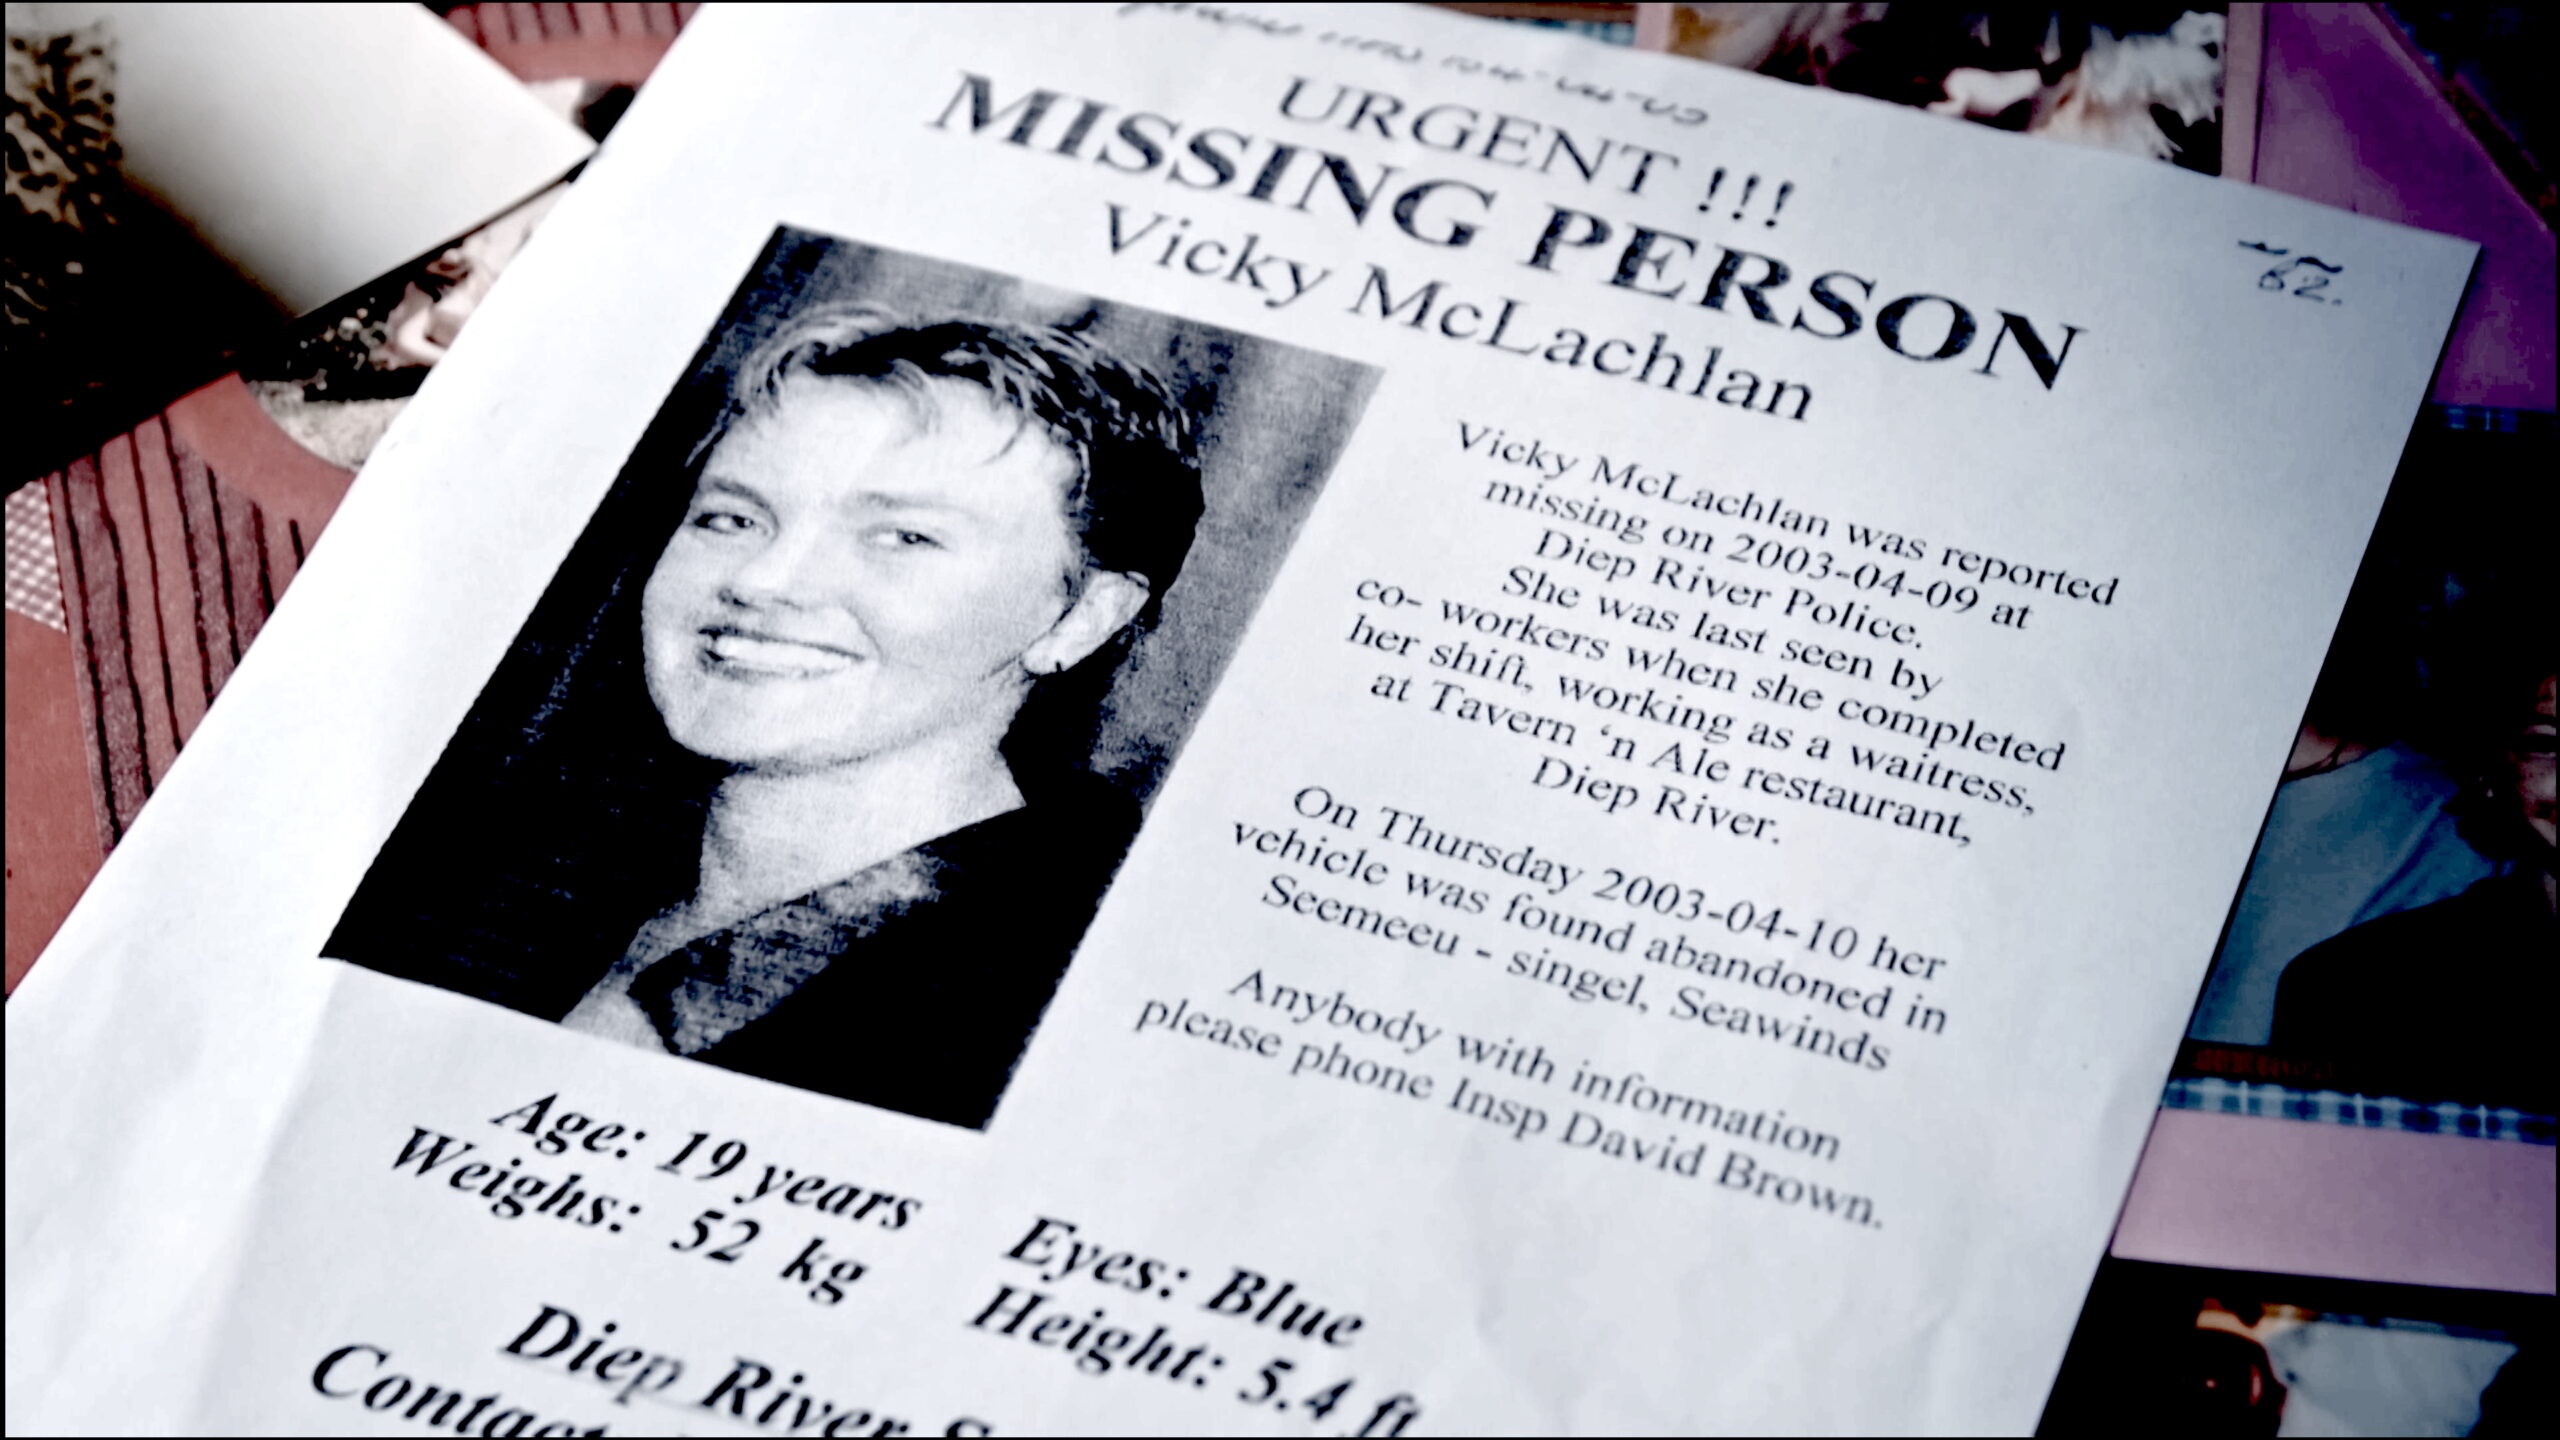 URGENT !!!
MISSING PERSON
Vicky McLachlan
62.
Vicky McLachlan was reported
missing on 2003-04-09 at
Diep River Police.
She was last seen by
co- workers when she completed
her shift, working as a waitress,
at Tavern ‘n Ale restaurant,
Diep River.
On Thursday 2003-04-10 her
vehicle was found abandoned in
Seemeeu - singel, Seawinds
Anybody with information
please phone Insp David Brown.
Age: 19 years
Weighs: 52 kg
Eyes: Blue
Height: 5.4 ft
Diep River